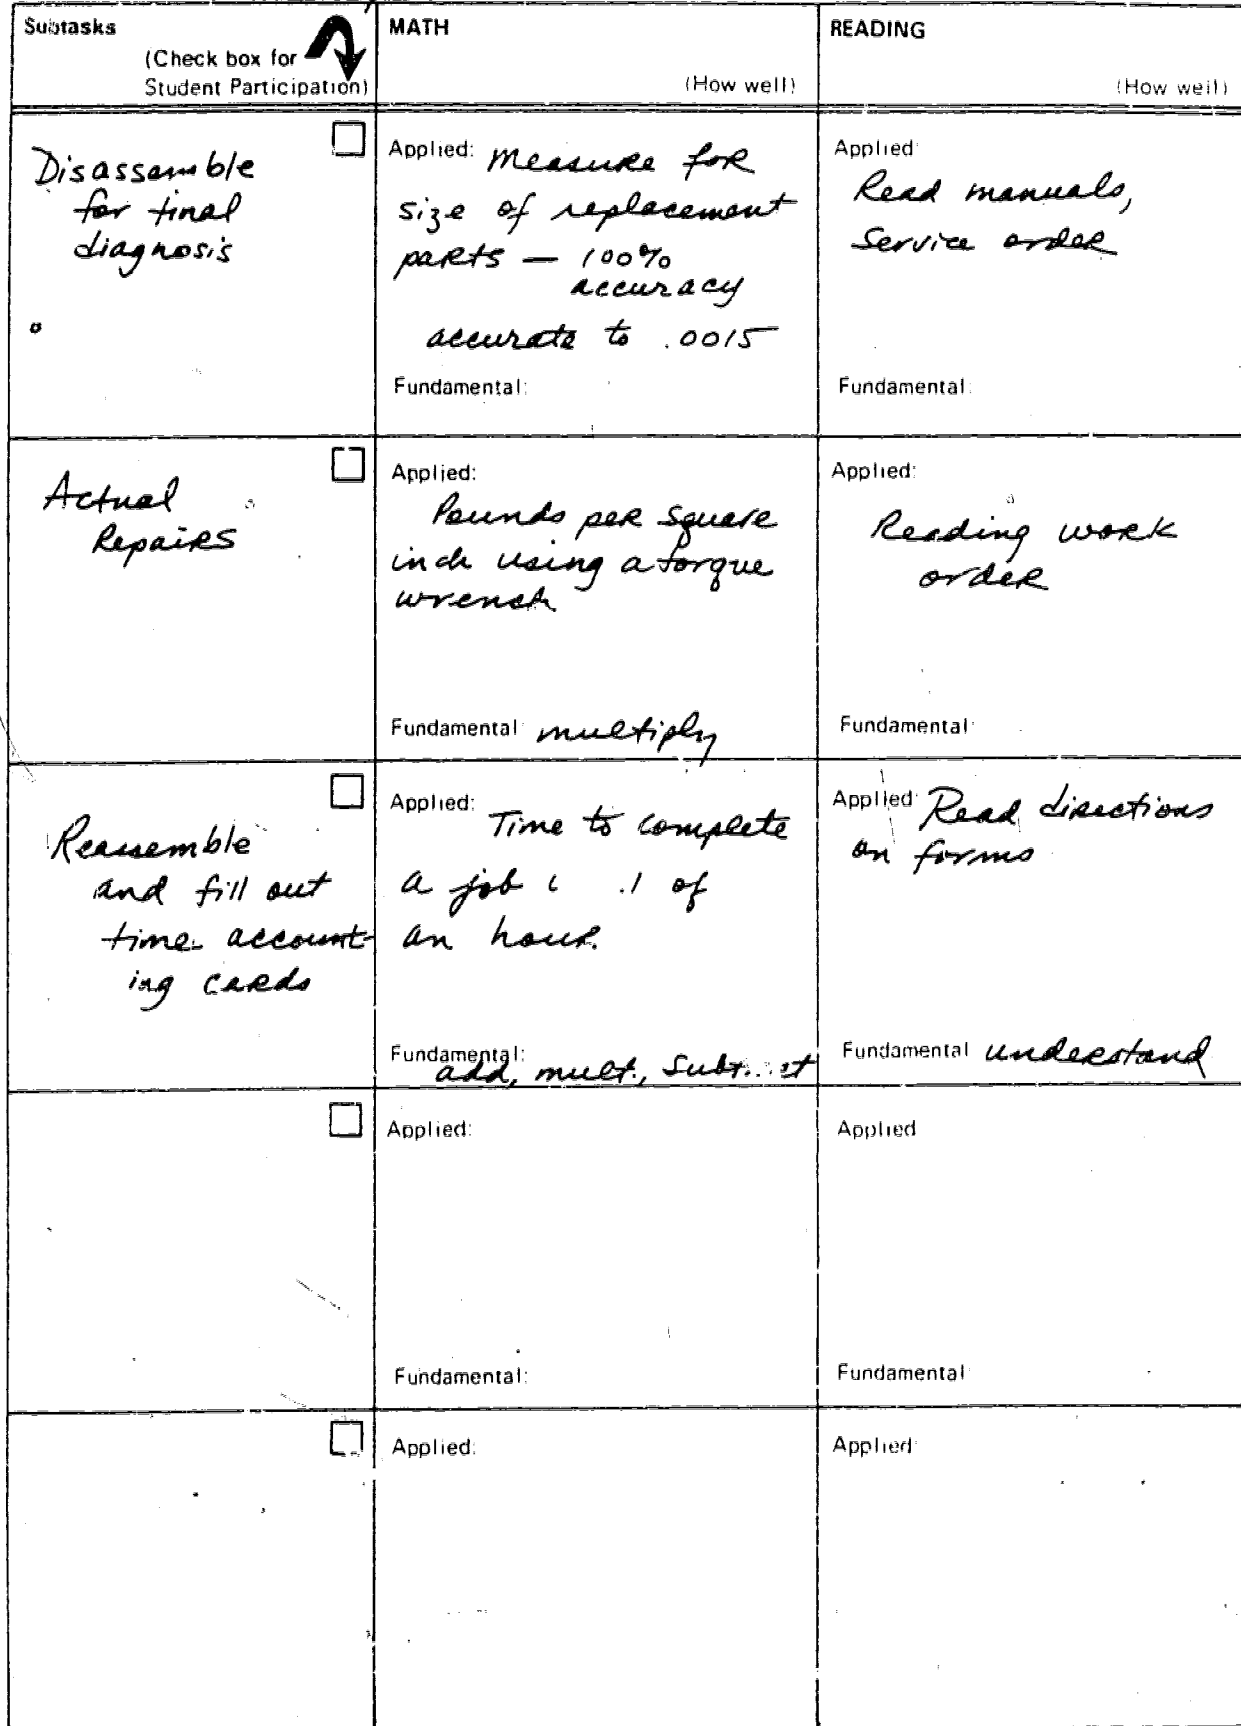 Subtasks
(Check box for
Student Participation)
MATH
(How well)
READING
(How well)
Disassemble
for final
diagnosis
Applied: Measure for
size of replacement
parts — 100%
accuracy
accurate to .0015
Fundamental:
Applied:
Read manuals,
Service order
Fundamental:
Actual
Repairs
Applied:
Pounds per square
inch using a torque
wrench
Fundamental: multiply
Applied:
Reading work
order
Fundamental:
Reassemble
and fill out
time account-
ing cards
Applied: Time to complete
a job .1 of
an hour.
Fundamental:
add, mult.,
Applied: Read directions
on forms
Fundamental understand
Applied:
Fundamental:
Applied
Fundamental
Applied:
Applied: